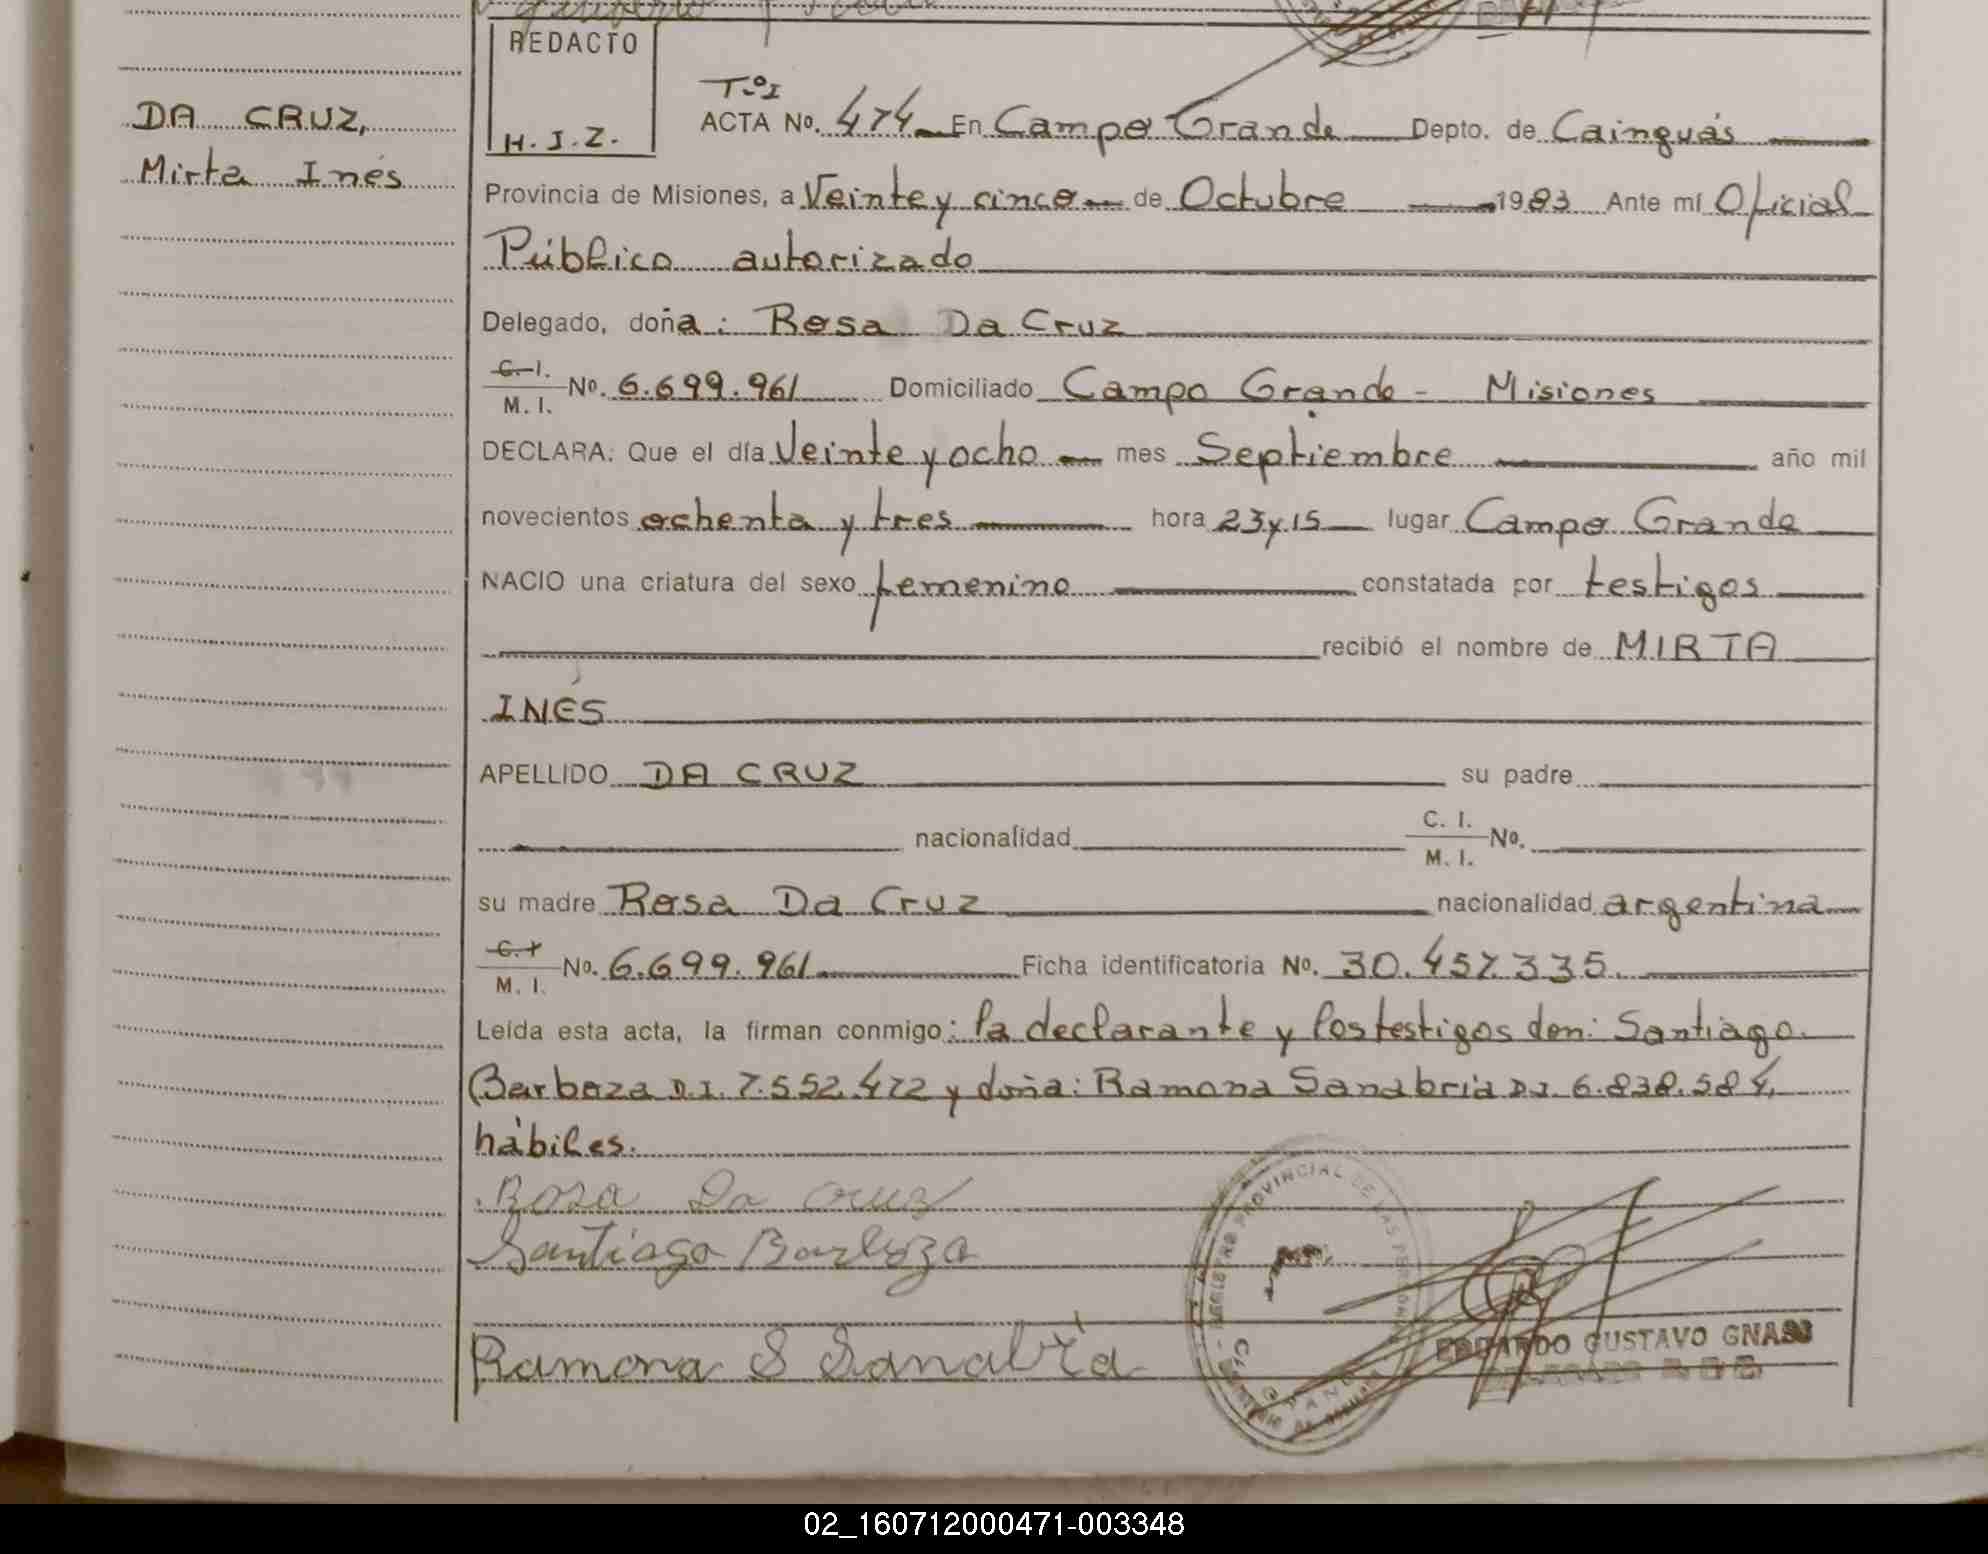 REDACTO
H.J.Z.
DA CRUZ,
Mirta Inés
Tº I
ACTA Nº. 474 En Campo Grande Depto. de Cainguás
Provincia de Misiones, a Veinte y cinco de Octubre 1983 Ante mí Oficial
Público autorizado
Delegado, doña: Rosa Da Cruz
C.I.
M.I. Nº. 6.699.961 Domiciliado Campo Grande - Misiones
DECLARA: Que el día Veinte y ocho mes Septiembre año mil
novecientos ochenta y tres hora 23 y 15 lugar Campo Grande
NACIO una criatura del sexo femenino constatada por testigos
recibió el nombre de MIRTA
INÉS
APELLIDO DA CRUZ su padre
nacionalidad C. I.
M. I. Nº.
su madre Rosa Da Cruz nacionalidad argentina
C.I.
M. I. Nº. 6.699.961 Ficha identificatoria Nº. 30.457.335.
Leída esta acta, la firman conmigo: la declarante y los testigos don: Santiago
Barboza D.I. 7.552.472 y doña: Ramona Sanabria D.I. 6.838.584,
hábiles.
Rosa Da Cruz
Santiago Barboza
Ramona S Sanabria
REGISTRO PROVINCIAL DE LAS PERSONAS
EDUARDO GUSTAVO GNASS
02_160712000471-003348